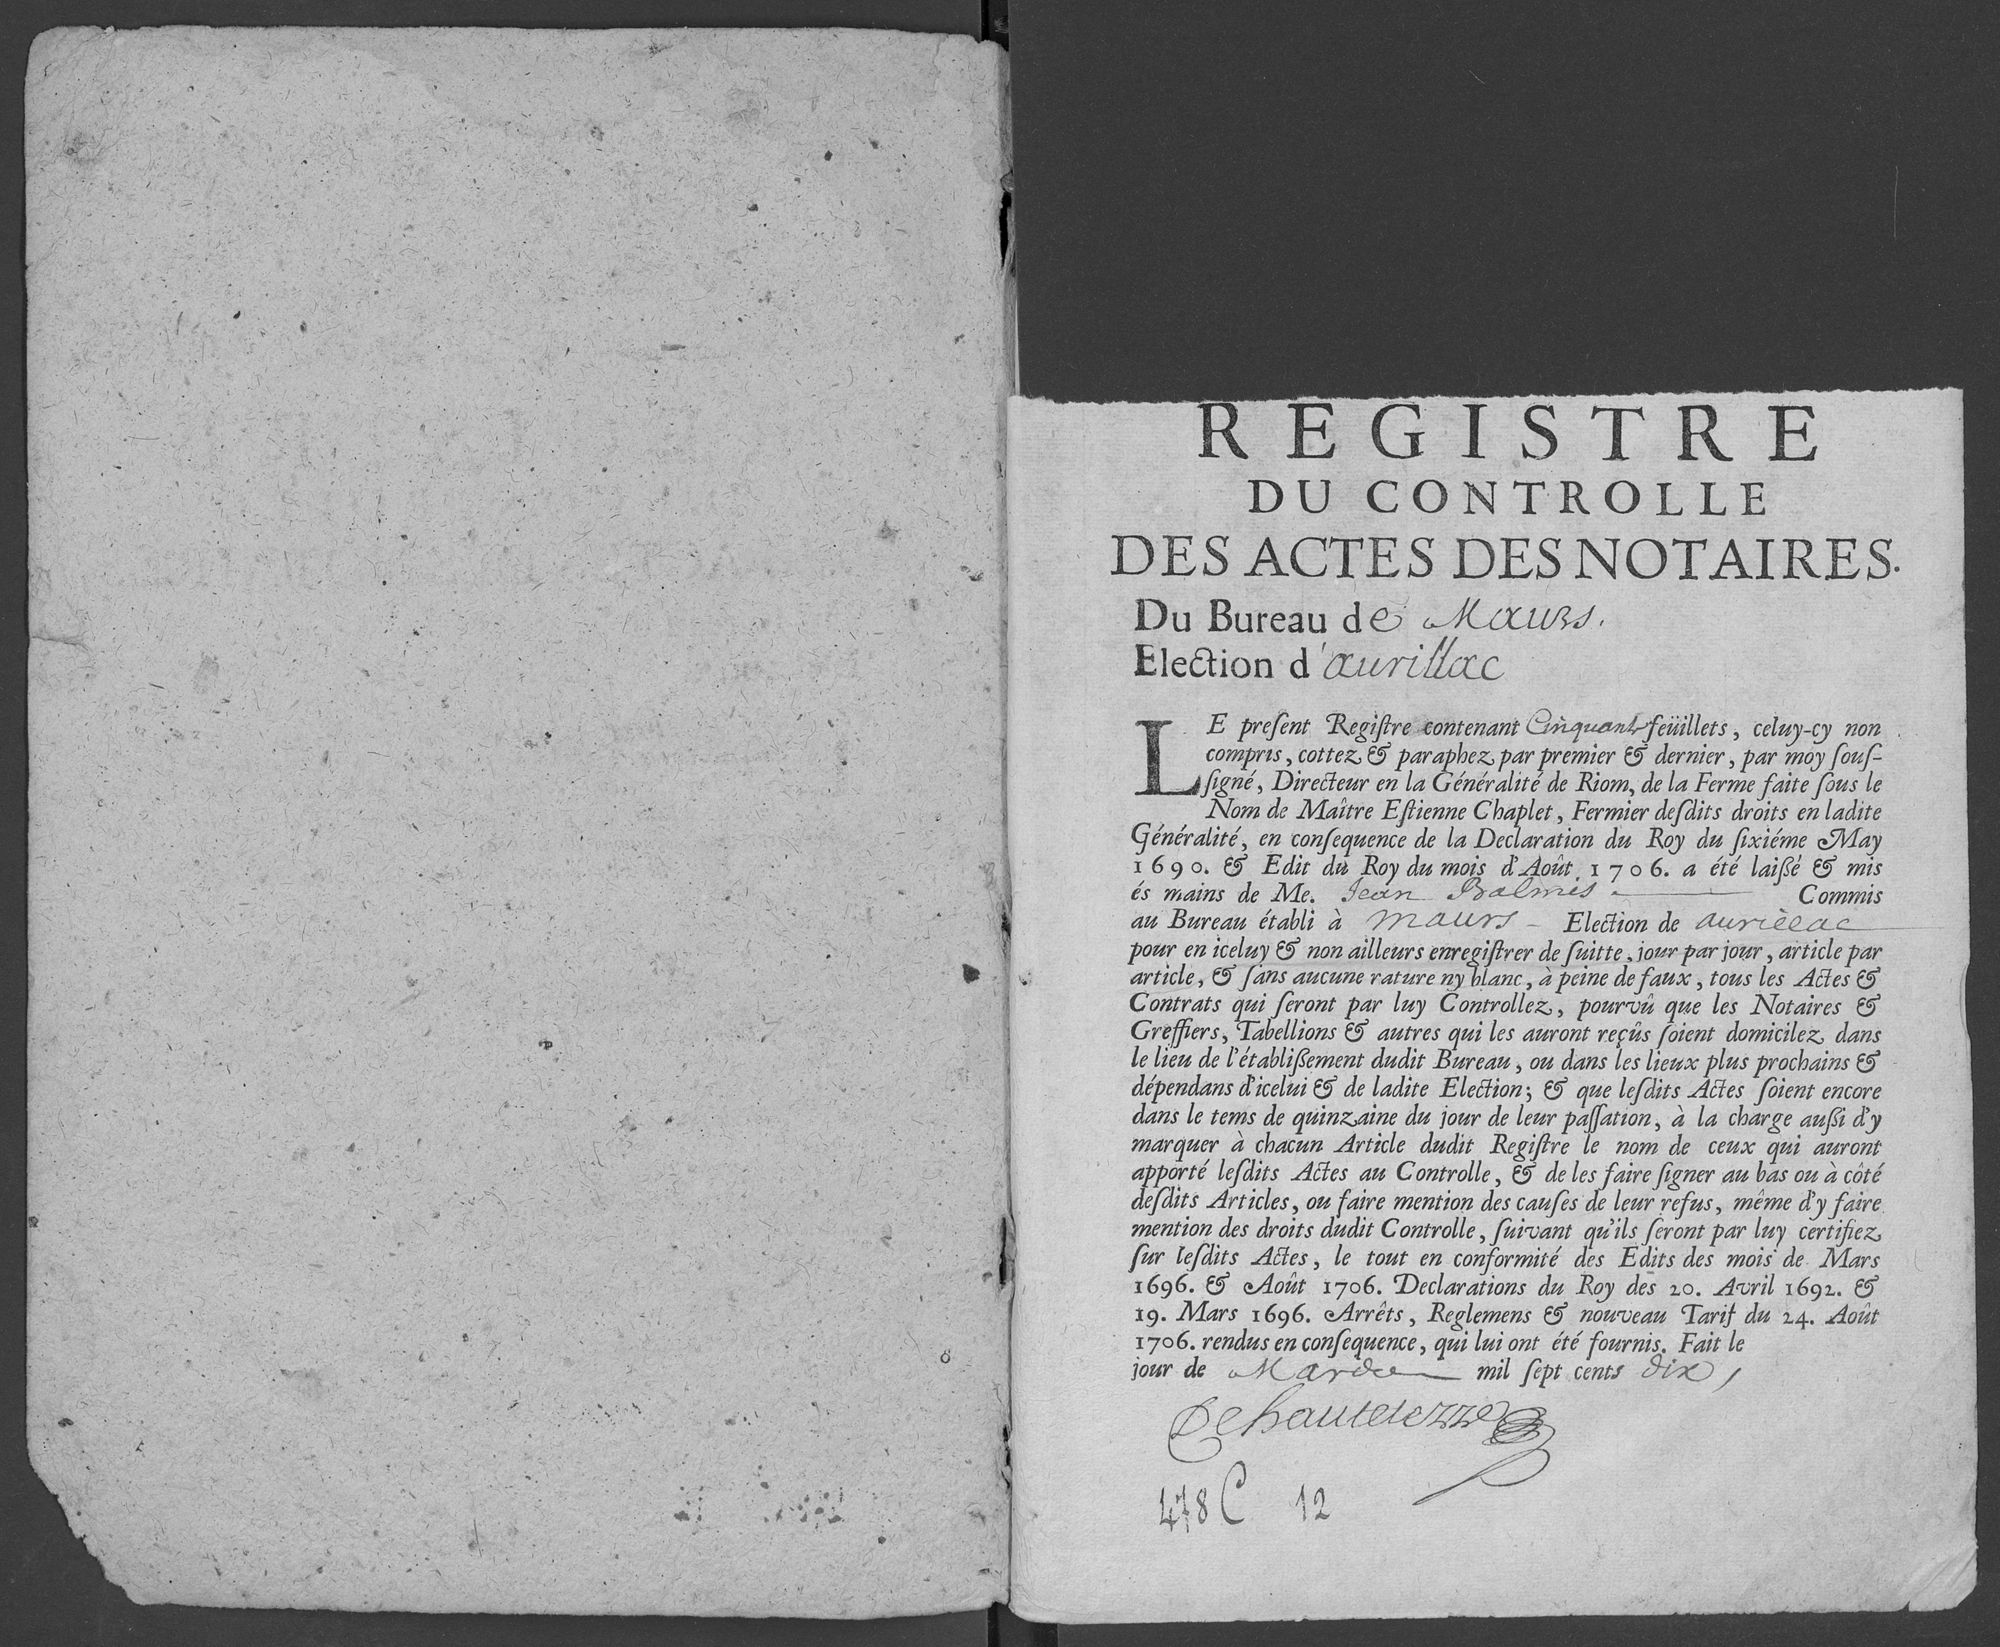 REGISTRE
DU CONTROLLE
DES ACTES DES NOTAIRES.
Du Bureau de Maurs.
Election d'aurillac
LE preſent Regiſtre contenant Cinquante feüillets, celuy-cy non
compris, cottez & paraphez par premier & dernier, par moy ſouſ-
ſigné, Directeur en la Généralité de Riom, de la Ferme faite ſous le
Nom de Maître Eſtienne Chaplet, Fermier deſdits droits en ladite
Généralité, en conſequence de la Declaration du Roy du ſixiéme May
1690. & Edit du Roy du mois d'Août 1706. a été laißé & mis
és mains de Me. Jean Balmes Commis
au Bureau établi à maurs Election de aurillac
pour en iceluy & non ailleurs enregiſtrer de ſuitte, jour par jour, article par
article, & ſans aucune rature ny blanc, à peine de faux, tous les Actes &
Contrats qui ſeront par luy Controllez, pourvû que les Notaires &
Greffiers, Tabellions & autres qui les auront reçûs ſoient domicilez dans
le lieu de l'établißement dudit Bureau, ou dans les lieux plus prochains &
dépendans d'icelui & de ladite Election; & que leſdits Actes ſoient encore
dans le tems de quinzaine du jour de leur paſſation, à la charge außi d'y
marquer à chacun Article dudit Regiſtre le nom de ceux qui auront
apporté leſdits Actes au Controlle, & de les faire ſigner au bas ou à côté
deſdits Articles, ou faire mention des cauſes de leur refus, même d'y faire
mention des droits dudit Controlle, ſuivant qu'ils ſeront par luy certifiez
ſur leſdits Actes, le tout en conformité des Edits des mois de Mars
1696. & Août 1706. Declarations du Roy des 20. Avril 1692. &
19. Mars 1696. Arrêts, Reglemens & nouveau Tarif du 24. Août
1706. rendus en conſequence, qui lui ont été fournis. Fait le
jour de mil ſept cents dix,
478 C 12